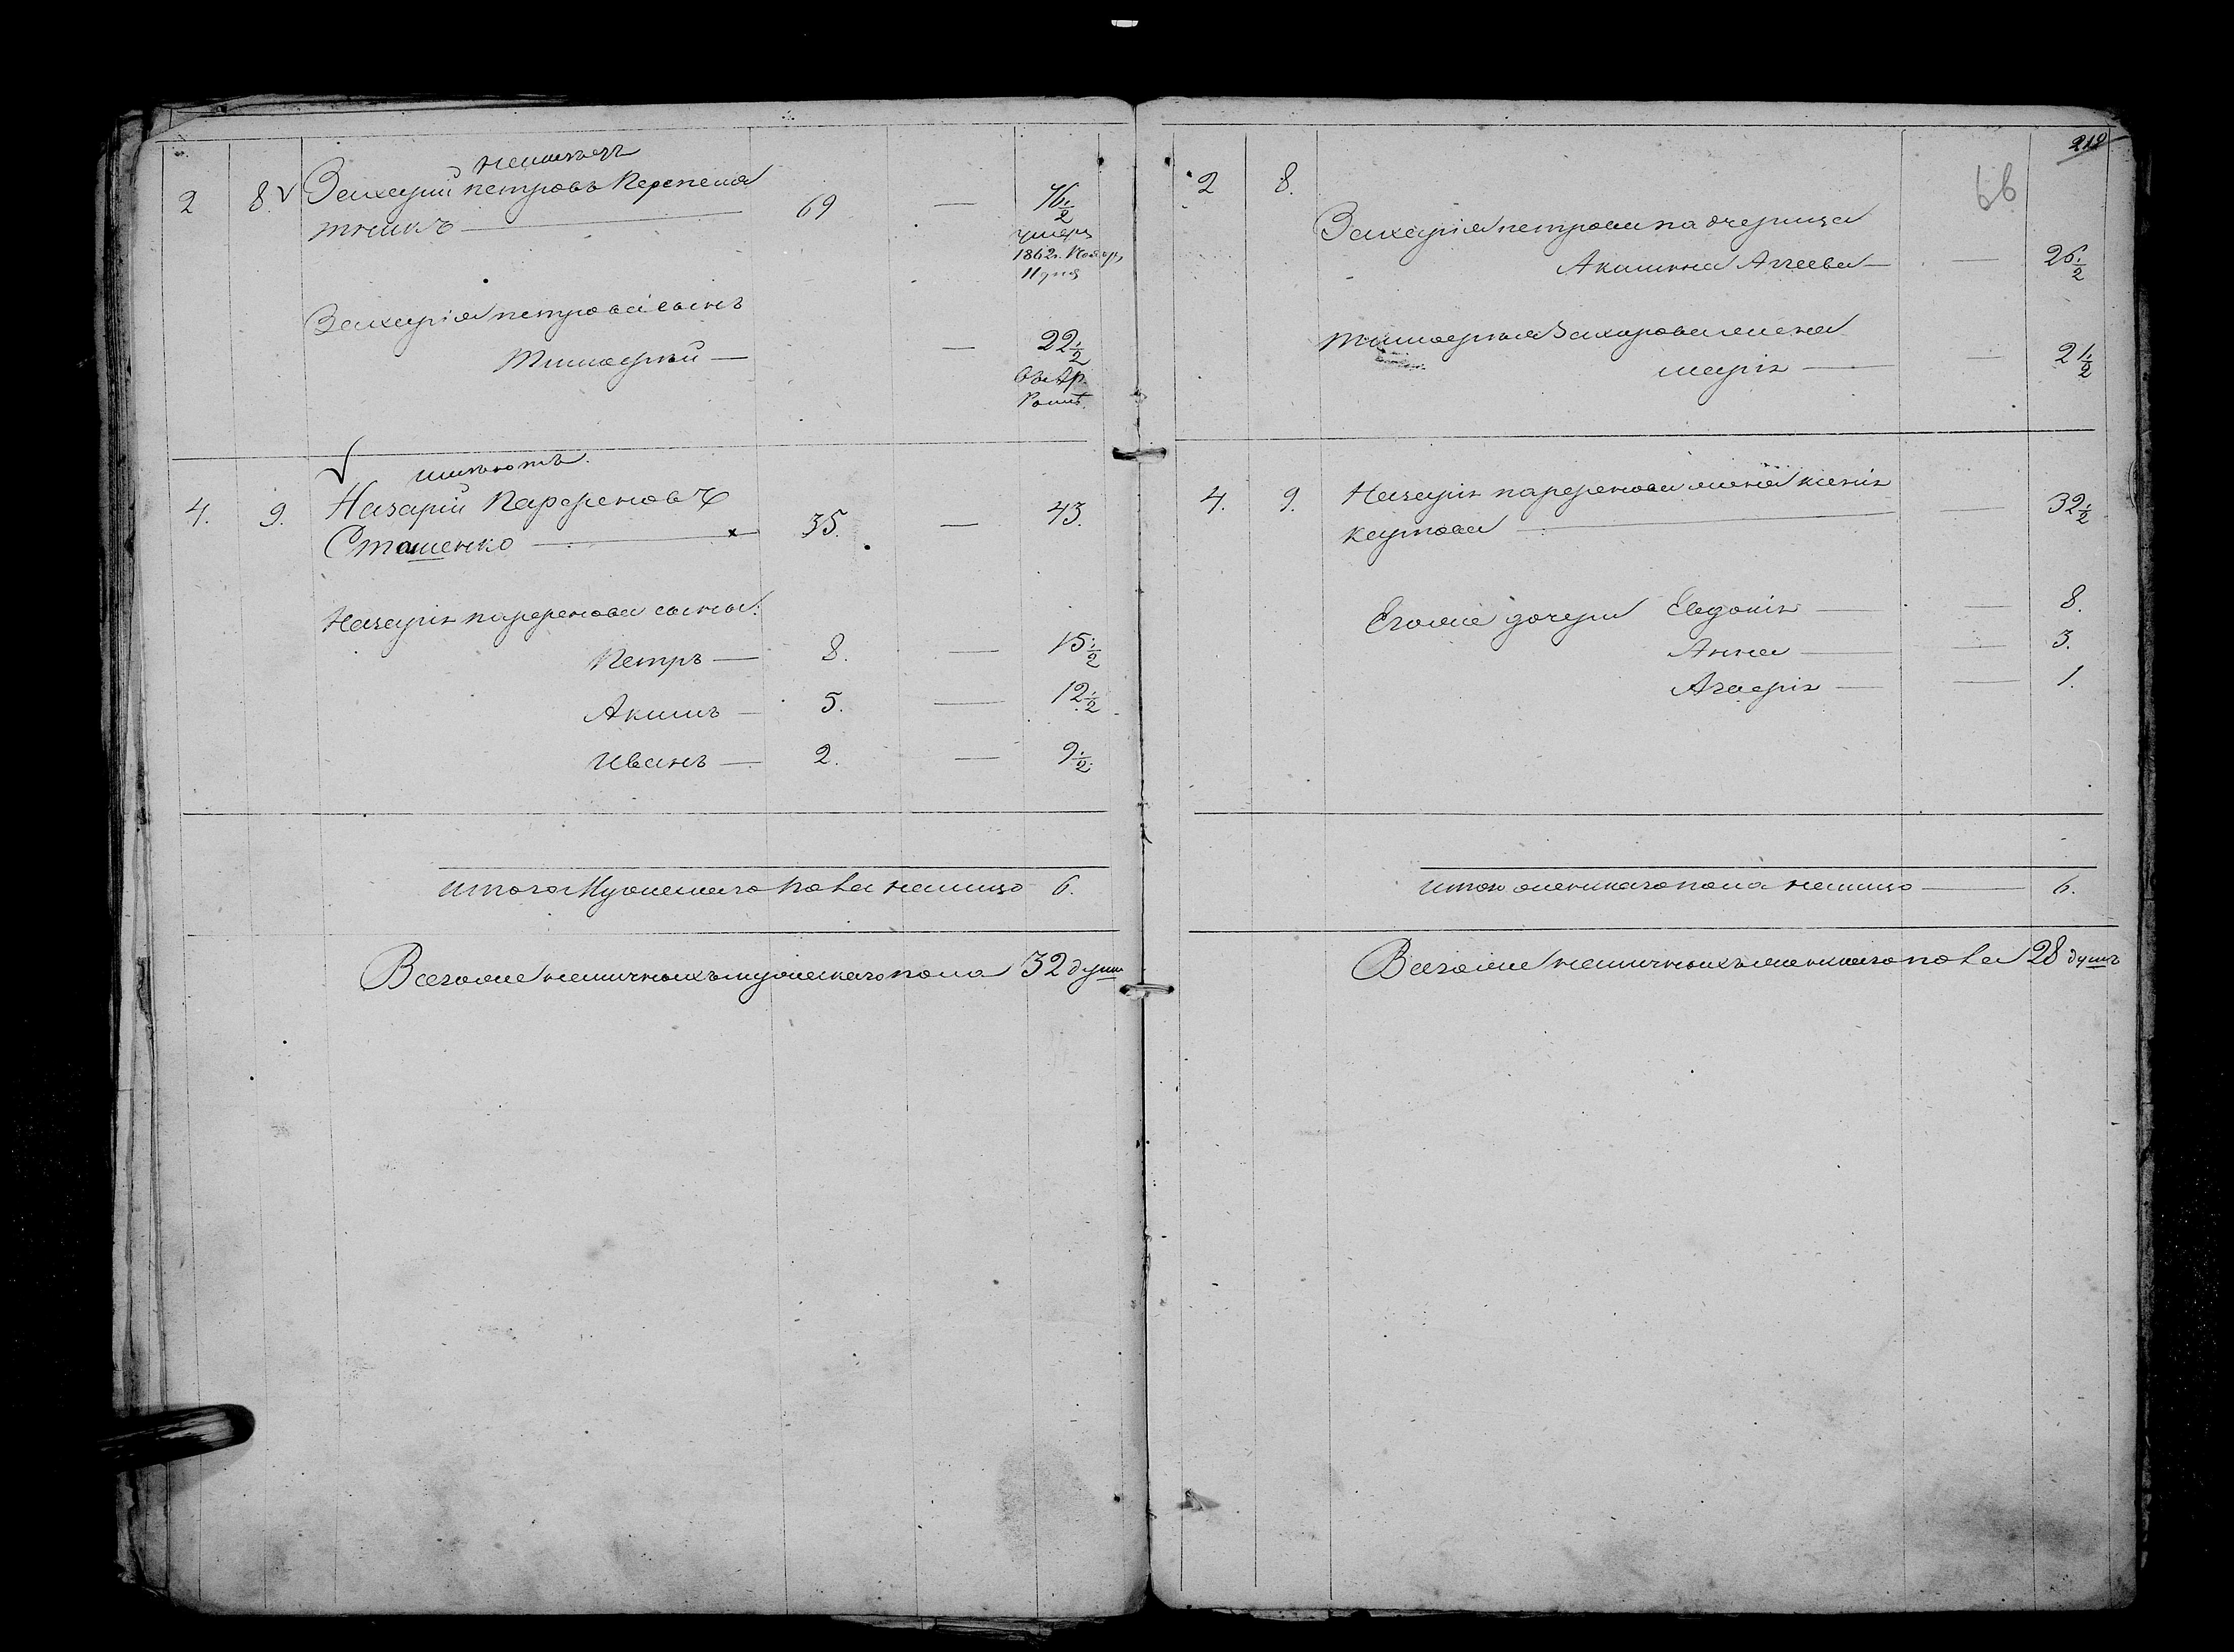 неимѣетъ
2 8. Захарій Петровъ Перепеля
тникъ — 69 — 76 1/2
умеръ
1862г. Ноябр,
11 дня
Захарія Петрова сынъ
Тимофѣй — — 22 1/2
имѣютъ.
4. 9. Назарій Парфеновъ
Сташенко — 35. — 43.
Назарія Парфенова сыновья:
Петръ — 8. — 15 1/2
Акимъ — 5. — 12 1/2
Иванъ — 2. — 9 1/2
Итого Мужескаго пола налицо 6.
Всегоже наличныхъ мужескаго пола 32 души
218
66
2 8.
Захарія Петрова падчерица
Акилина Агѣева — — 26 1/2
Тимофѣя Захарова жена
Марія — — 21 1/2
4. 9. Назарія Парфенова жена Ксенія
Карпова — — 32 1/2
Егоже дочери Евдокія — — 8.
Анна — — 3.
Агафія — — 1.
Итого женскаго пола налицо — 6.
Всегоже наличныхъ женскаго пола 28 душъ